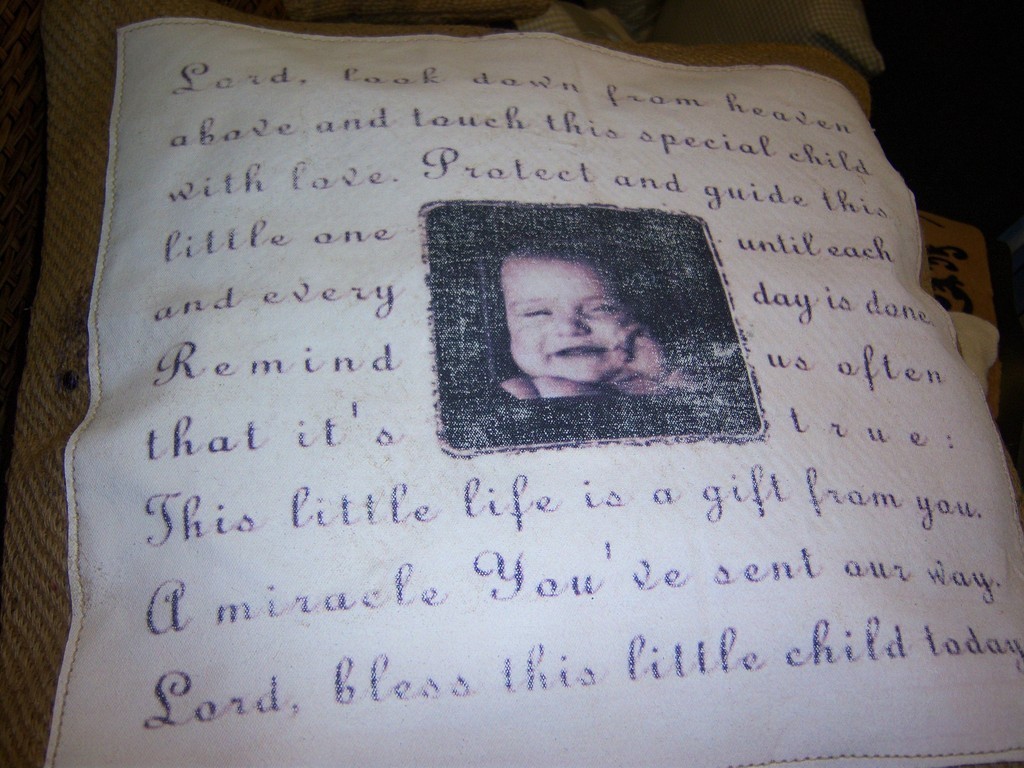 Lord, look down from heaven
above and touch this special child
with love. Protect and guide this
little one until each
and every day is done.
Remind us often
that it's true:
This little life is a gift from you.
A miracle You've sent our way.
Lord, bless this little child today